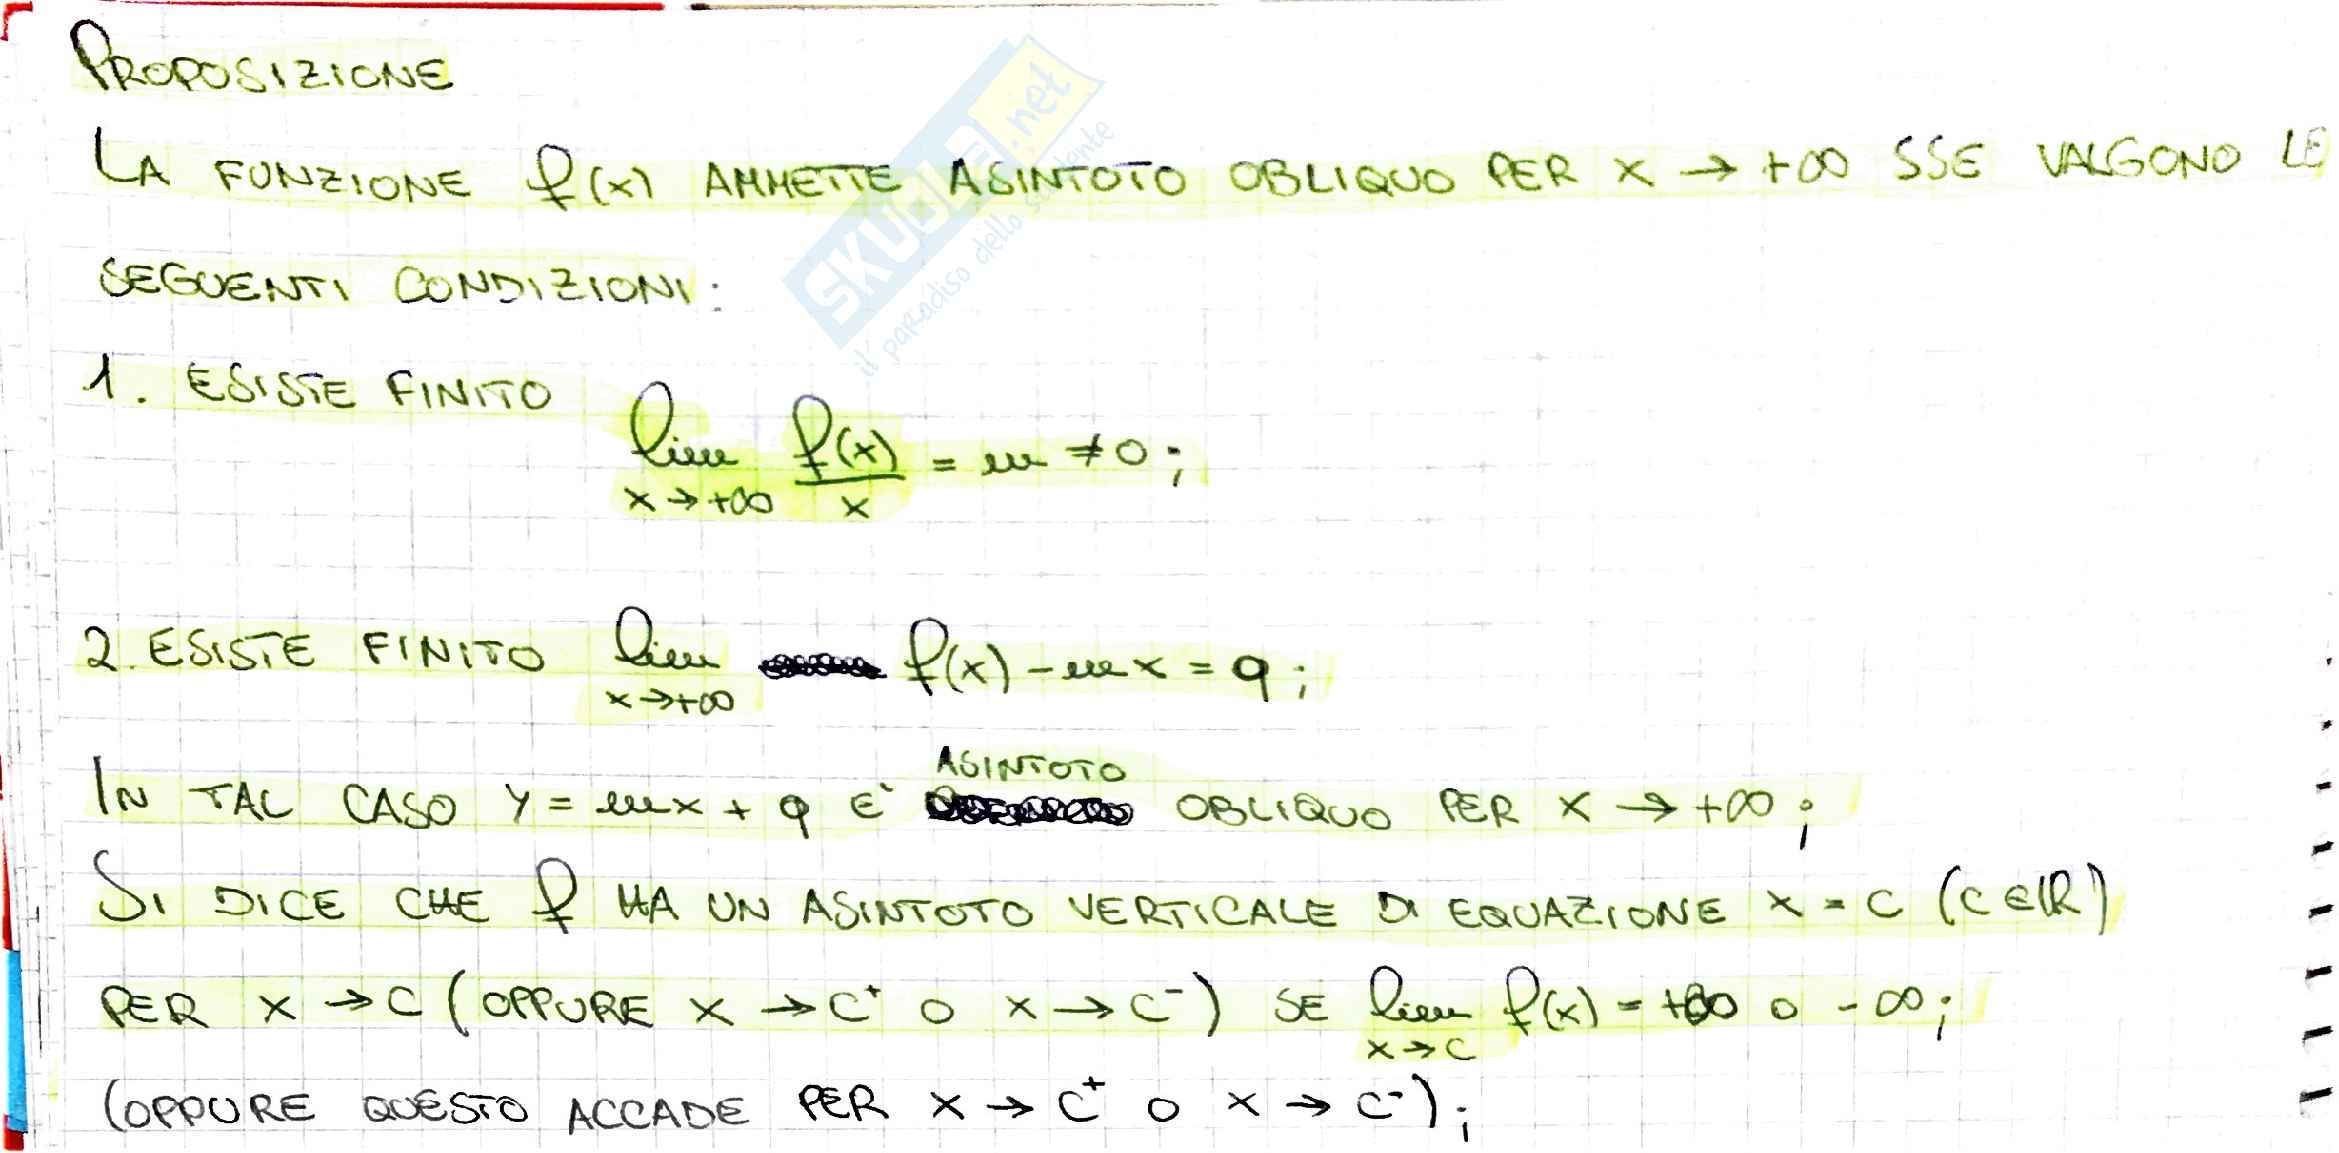 PROPOSIZIONE
LA FUNZIONE f(x) AMMETTE ASINTOTO OBLIQUO PER x → +∞ SSE VALGONO LE
SEGUENTI CONDIZIONI:
1. ESISTE FINITO lim x→+∞ f(x)/x = m ≠ 0;
2. ESISTE FINITO lim x→+∞ f(x) - mx = q;
IN TAL CASO y = mx + q E' ASINTOTO OBLIQUO PER x → +∞;
SI DICE CHE f HA UN ASINTOTO VERTICALE DI EQUAZIONE x = c (c ∈ ℝ)
PER x → c (OPPURE x → c⁺ O x → c⁻) SE lim x→c f(x) = +∞ o -∞;
(OPPURE QUESTO ACCADE PER x → c⁺ O x → c⁻);
SKUOLA.net
il paradiso dello studente